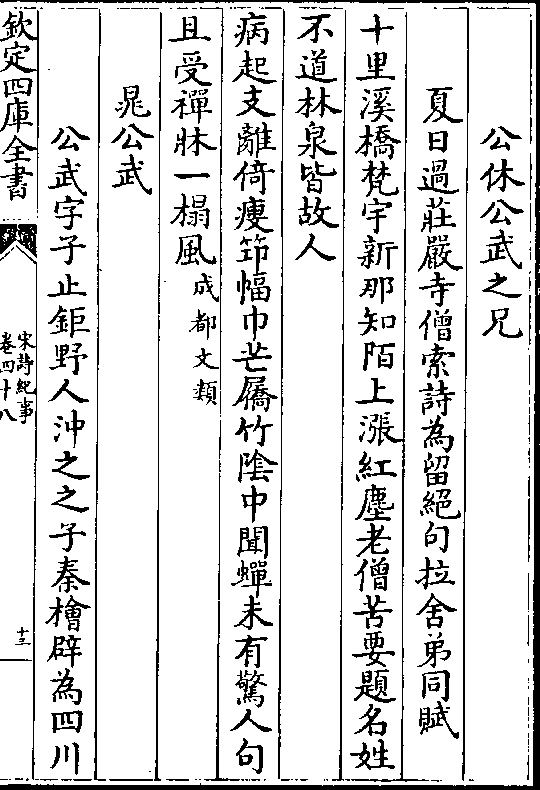 公休公武之兄
夏日過莊嚴寺僧索詩為留絕句拉舍弟同賦
十里溪橋梵宇新那知陌上漲紅塵老僧苦要題名姓
不道林泉皆故人
病起支離倚瘦筇幅巾芒屩竹陰中聞蟬未有驚人句
且受禪牀一榻風成都文類
晁公武
公武字子止鉅野人沖之之子秦檜辟為四川
欽定四庫全書
宋詩紀事
卷四十八
十三